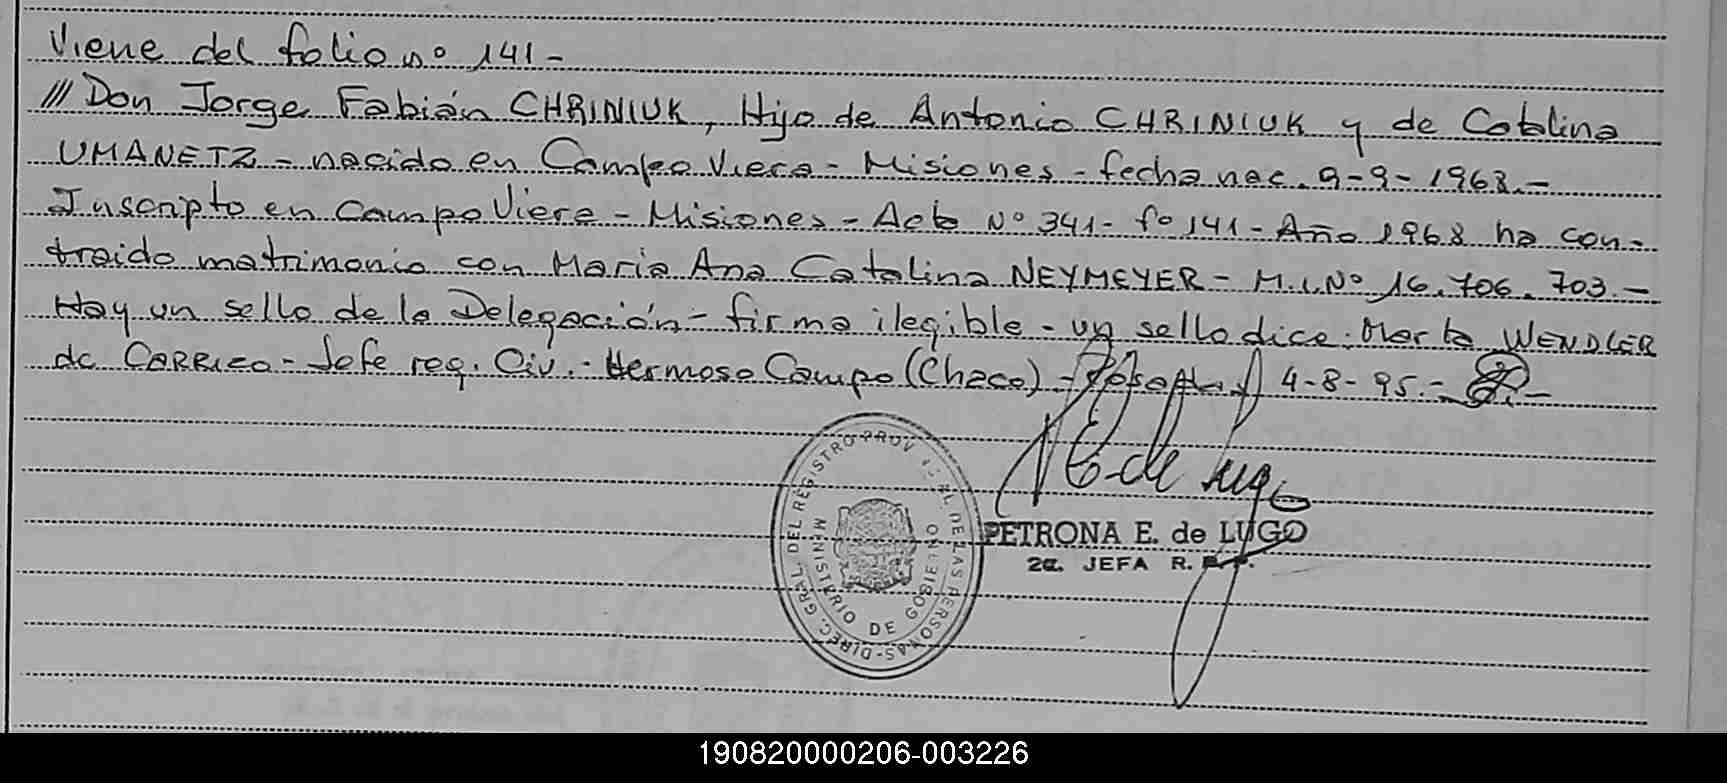 Viene del folio nº 141-
/// Don Jorge Fabián CHRINIUK, Hijo de Antonio CHRINIUK y de Catalina
UMANETZ - nacido en Campo Viera - Misiones - fecha nac. 9-9-1968.-
Inscripto en Campo Viera - Misiones - Acta Nº 341- fº 141 - Año 1968 ha con-
traido matrimonio con Maria Ana Catalina NEYMEYER - M.I.Nº 16.706.703.-
Hay un sello de la Delegación - firma ilegible - un sello dice: Marta WENDLER
de CARRICO - Jefe reg. Civ. - Hermoso Campo (Chaco) - 4-8-95.-
de Lugo
PETRONA E. de LUGO
2a. JEFA R.
DIREC. GRAL DEL REGISTRO PROV DE LAS PERSONAS-
MINISTERIO DE GOBIERNO
190820000206-003226